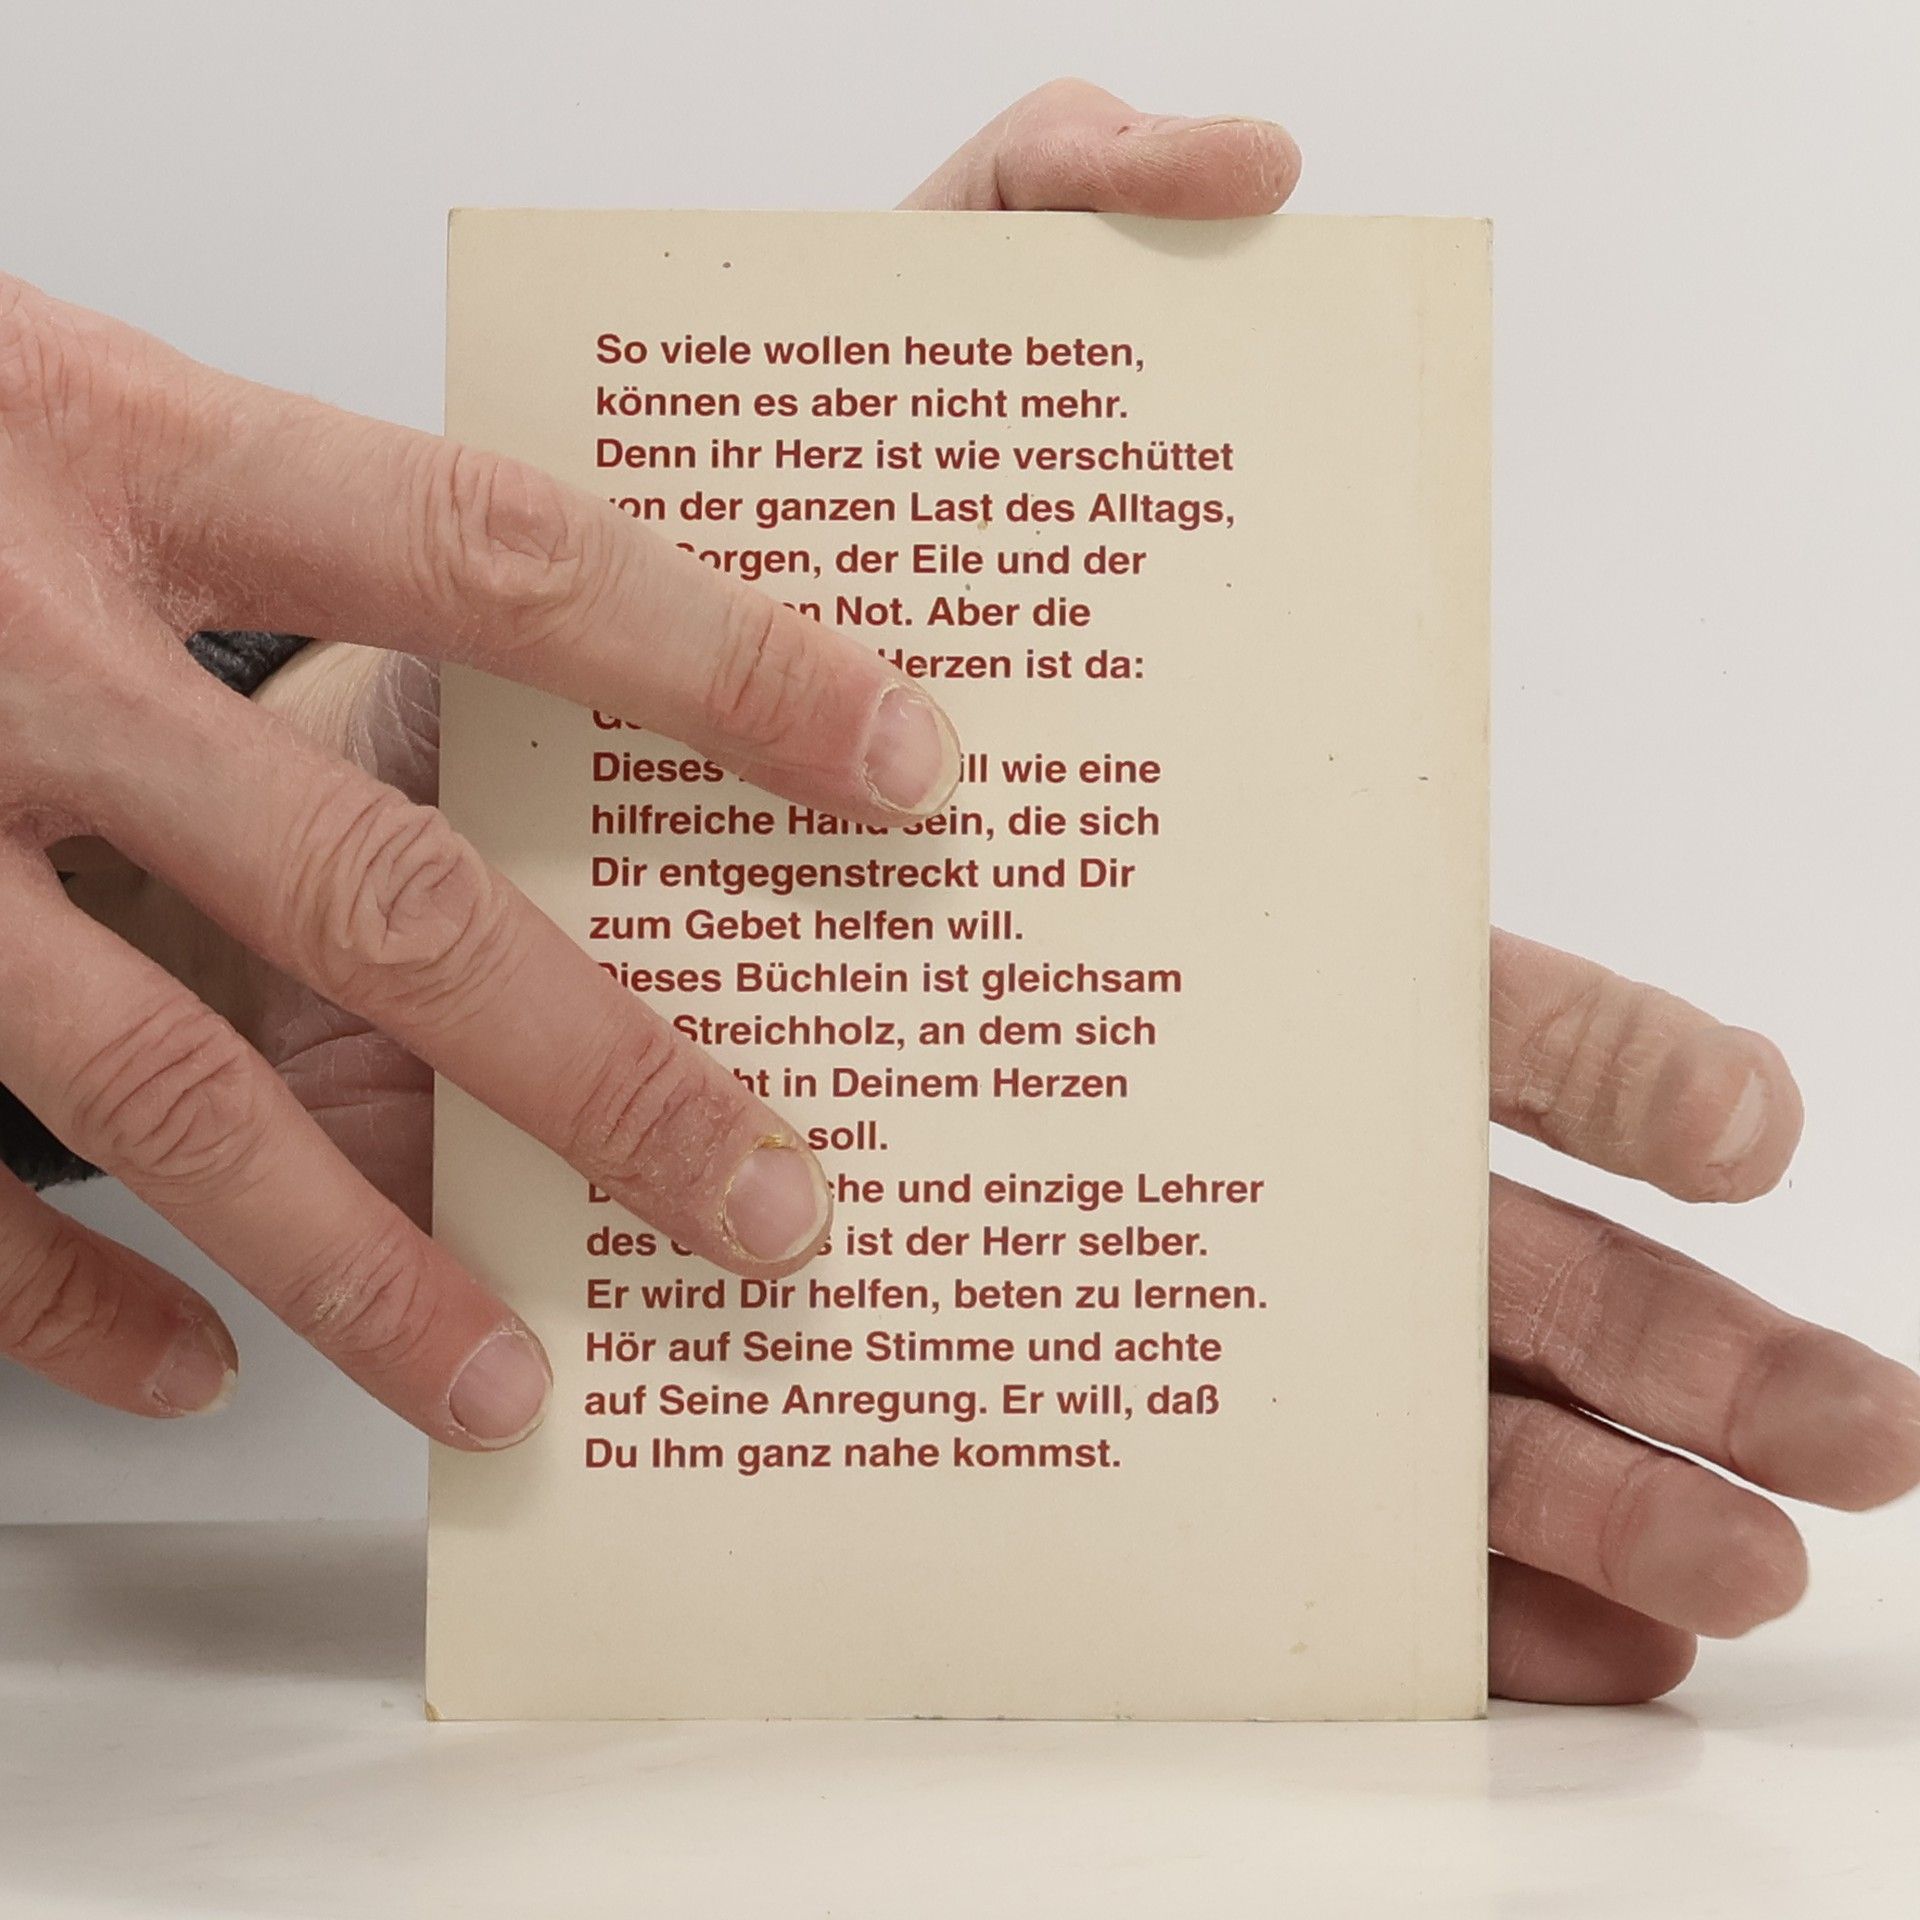 So viele wollen heute beten,
können es aber nicht mehr.
Denn ihr Herz ist wie verschüttet
von der ganzen Last des Alltags,
Sorgen, der Eile und der
Not. Aber die
Herzen ist da:
Dieses will wie eine
hilfreiche Hand sein, die sich
Dir entgegenstreckt und Dir
zum Gebet helfen will.
Dieses Büchlein ist gleichsam
Streichholz, an dem sich
in Deinem Herzen
soll.
und einzige Lehrer
des ist der Herr selber.
Er wird Dir helfen, beten zu lernen.
Hör auf Seine Stimme und achte
auf Seine Anregung. Er will, daß
Du Ihm ganz nahe kommst.